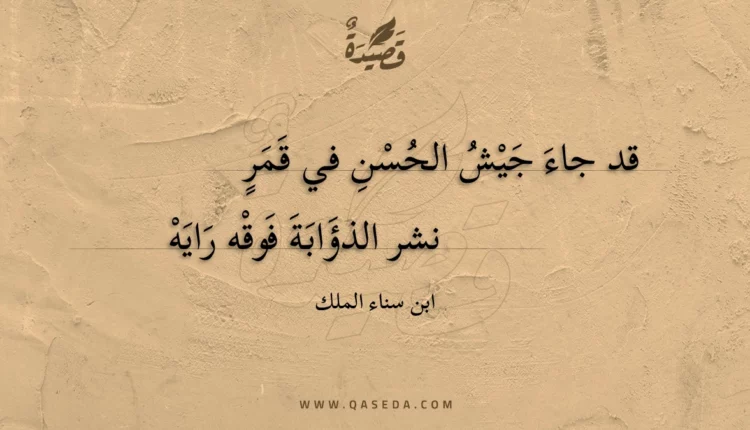 قَصِيدَةٌ
قد جاءَ جَيْشُ الحُسْنِ في قَمَرٍ
نشر الذؤَابَةَ فَوقْه رَايَهْ
ابن سناء الملك
WWW.QASEDA.COM